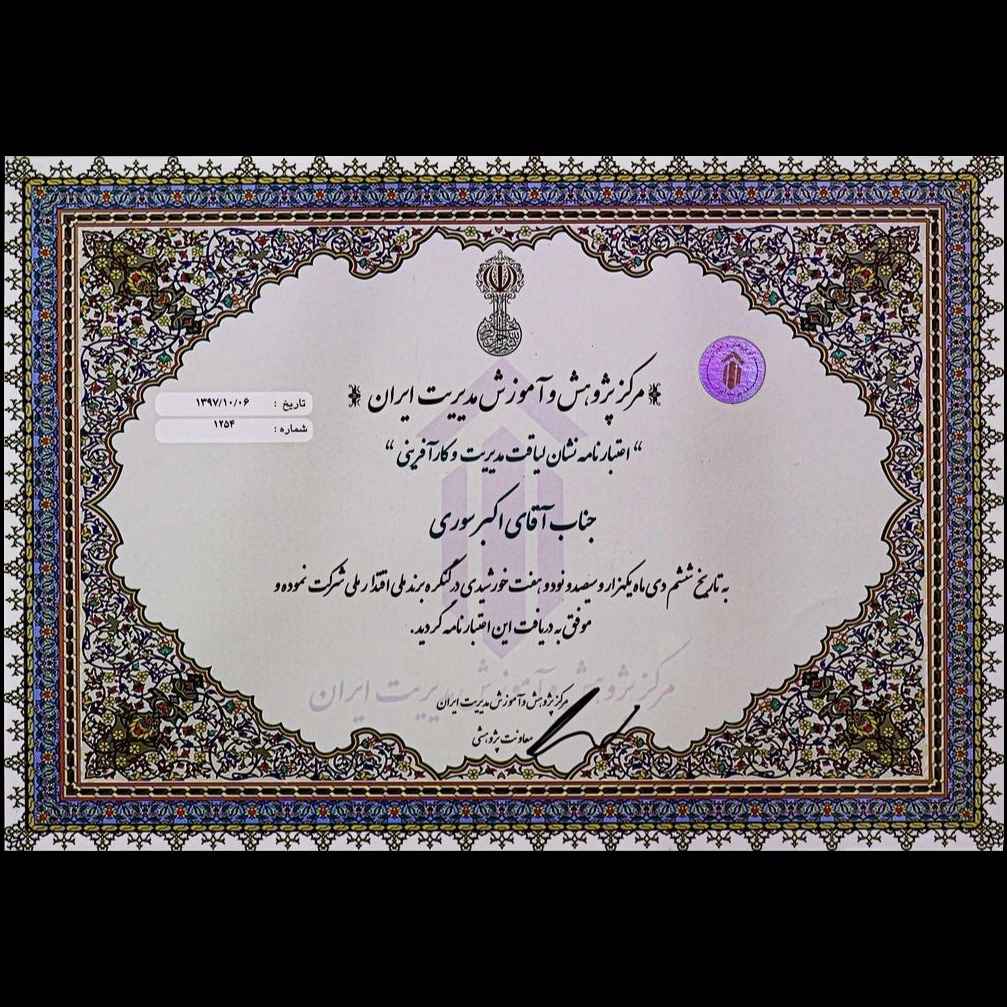 مرکز پژوهش و آموزش مدیریت ایران
تاریخ : ۱۳۹۷/۱۰/۰۶
شماره : ۱۲۵۴
“اعتبارنامه نشان لیاقت مدیریت و کارآفرینی“
جناب آقای اکبر سوری
به تاریخ ششم دی ماه یکهزار و سیصد و نود و هفت خورشیدی در کنگره برند ملی اقتدار ملی شرکت نموده و
موفق به دریافت این اعتبارنامه گردید.
مرکز پژوهش و آموزش مدیریت ایران
مرکز پژوهش و آموزش مدیریت ایران
معاونت پژوهشی